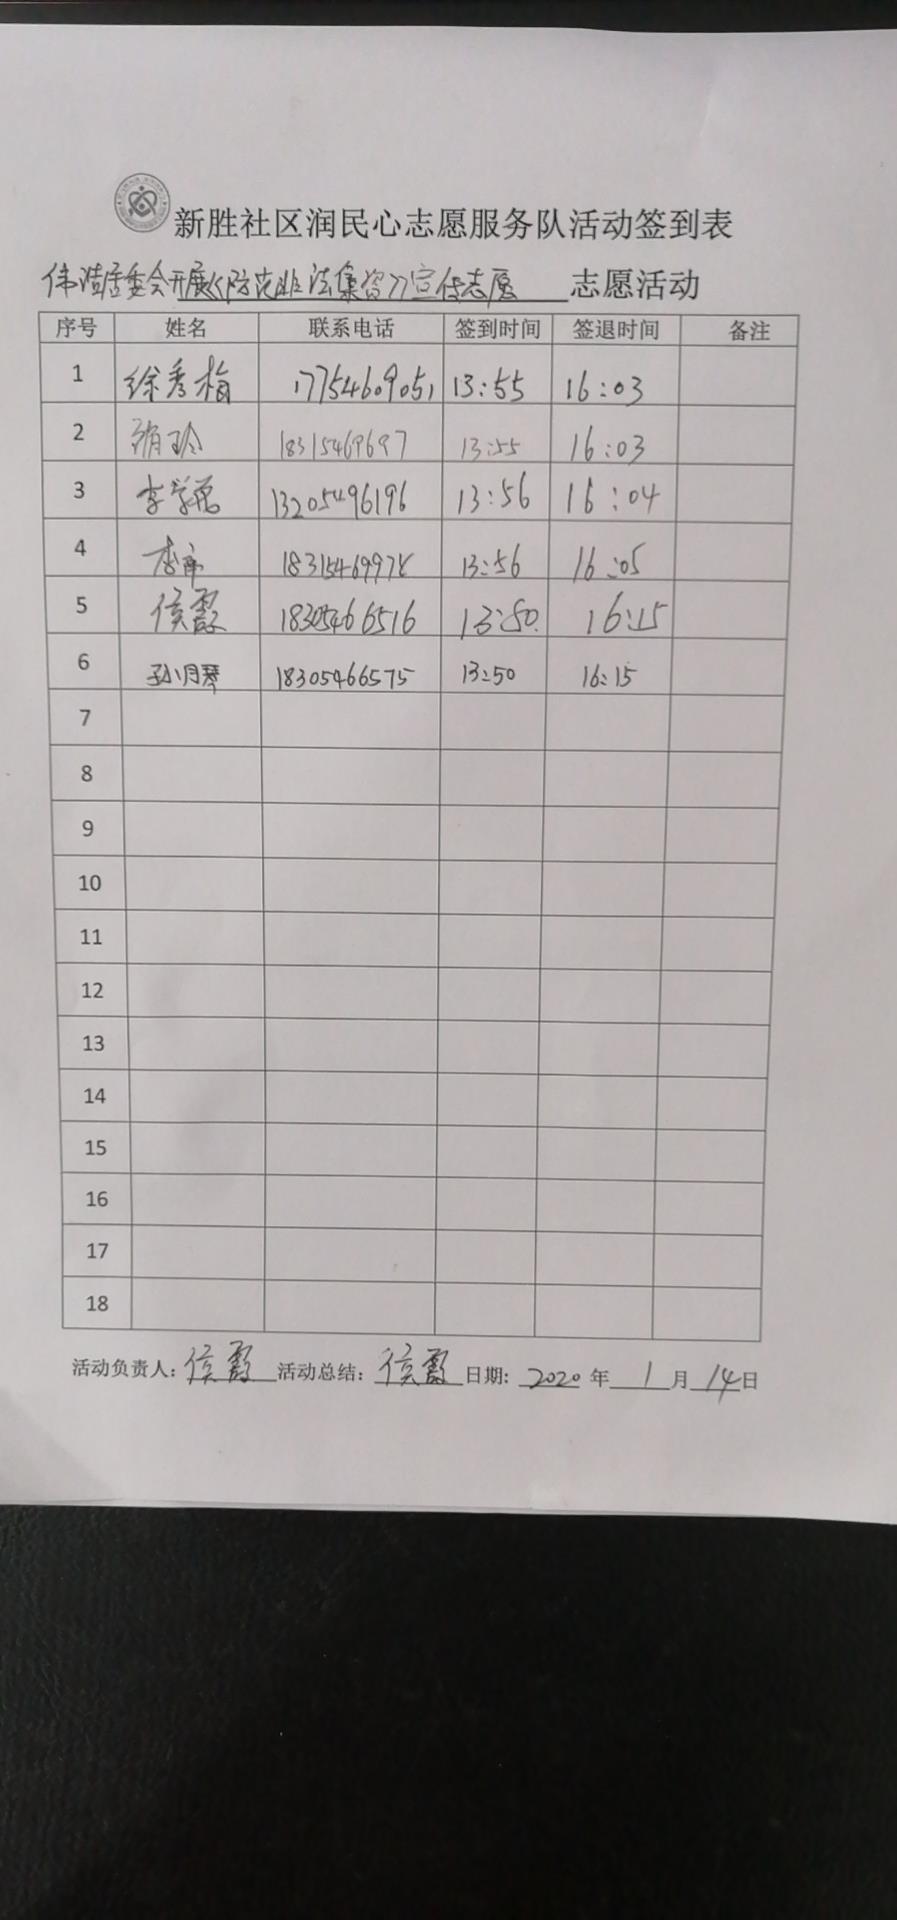 新胜社区润民心志愿服务队活动签到表
居委会开展《防范非法集资》宣传志愿 志愿活动
序号 姓名 联系电话 签到时间 签退时间 备注
1 徐秀梅 17754609051 13:55 16:03
2 玲 18315469697 13:55 16:03
3 李 13205496196 13:56 16:04
4 李 1831546997 13:56 16:05
5 侯霞 18305466516 13:50 16:15
6 孙月琴 18305466575 13:50 16:15
7
8
9
10
11
12
13
14
15
16
17
18
活动负责人: 侯霞 活动总结: 侯霞 日期: 2020 年 1 月 14 日